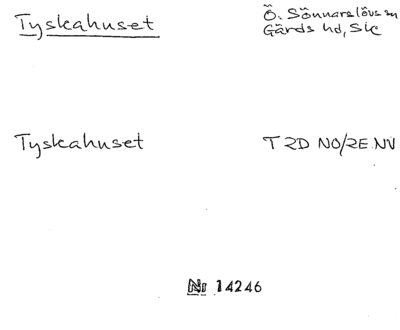 Tyskahuset
Ö. Sönnarslövs sn
Gärds hd, Sk
Tyskahuset
T 2D NO/2E NV
Nr 14246